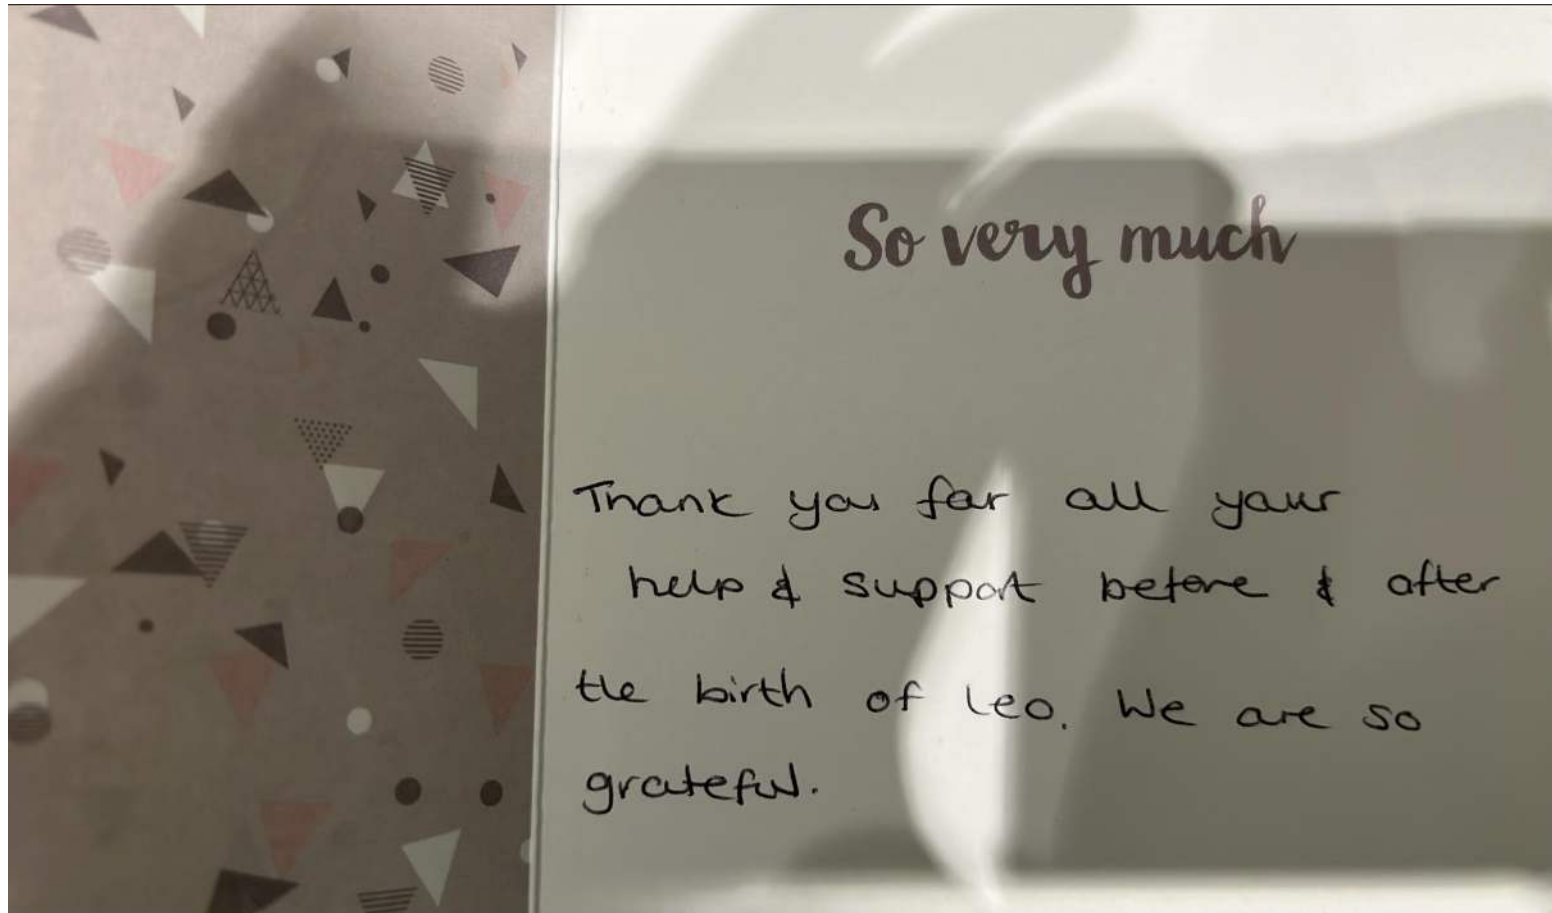 So very much
Thank you for all your
help & support before & after
the birth of Leo. We are so
grateful.